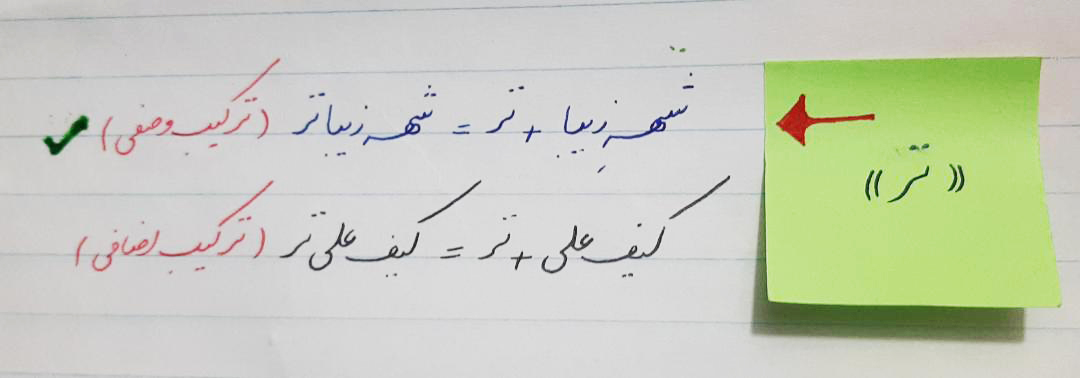 «تر»
شهرِ زیبا + تر = شهر زیباتر (ترکیب وصفی) ✔
کیف علی + تر = کیف علی تر (ترکیب اضافی)